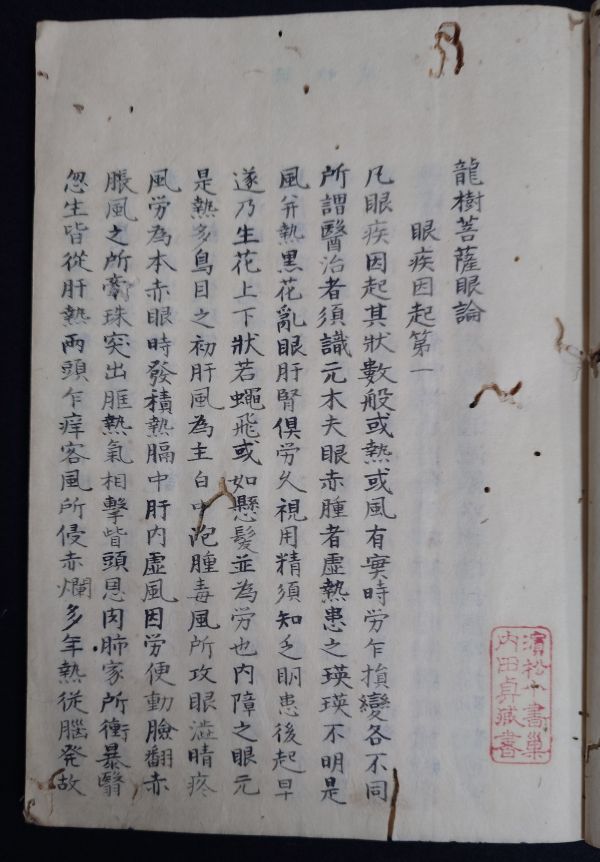 龍樹菩薩眼論
眼疾因起第一
凡眼疾因起其狀數般或熱或風有實時勞乍損變各不同
所謂醫治者須識元本夫眼赤腫者虛熱患之瑛瑛不明是
風并熱黑花亂眼肝腎俱勞久視用精須知乏明患後起早
遂乃生花上下狀若蠅飛或如懸髮並為勞也內障之眼元
是熱多鳥目之初肝風為主白中泡腫毒風所攻眼澁睛疼
風勞為本赤眼時發積熱膈中肝內虛風因勞便動臉翻赤
脹風之所 珠突出眶熱氣相擊眥頭息肉肺家所衝暴翳
忽生皆從肝熱兩頭乍痒客風所侵赤爛多年熱從腦発故
濱松十 巢
內田貞藏書